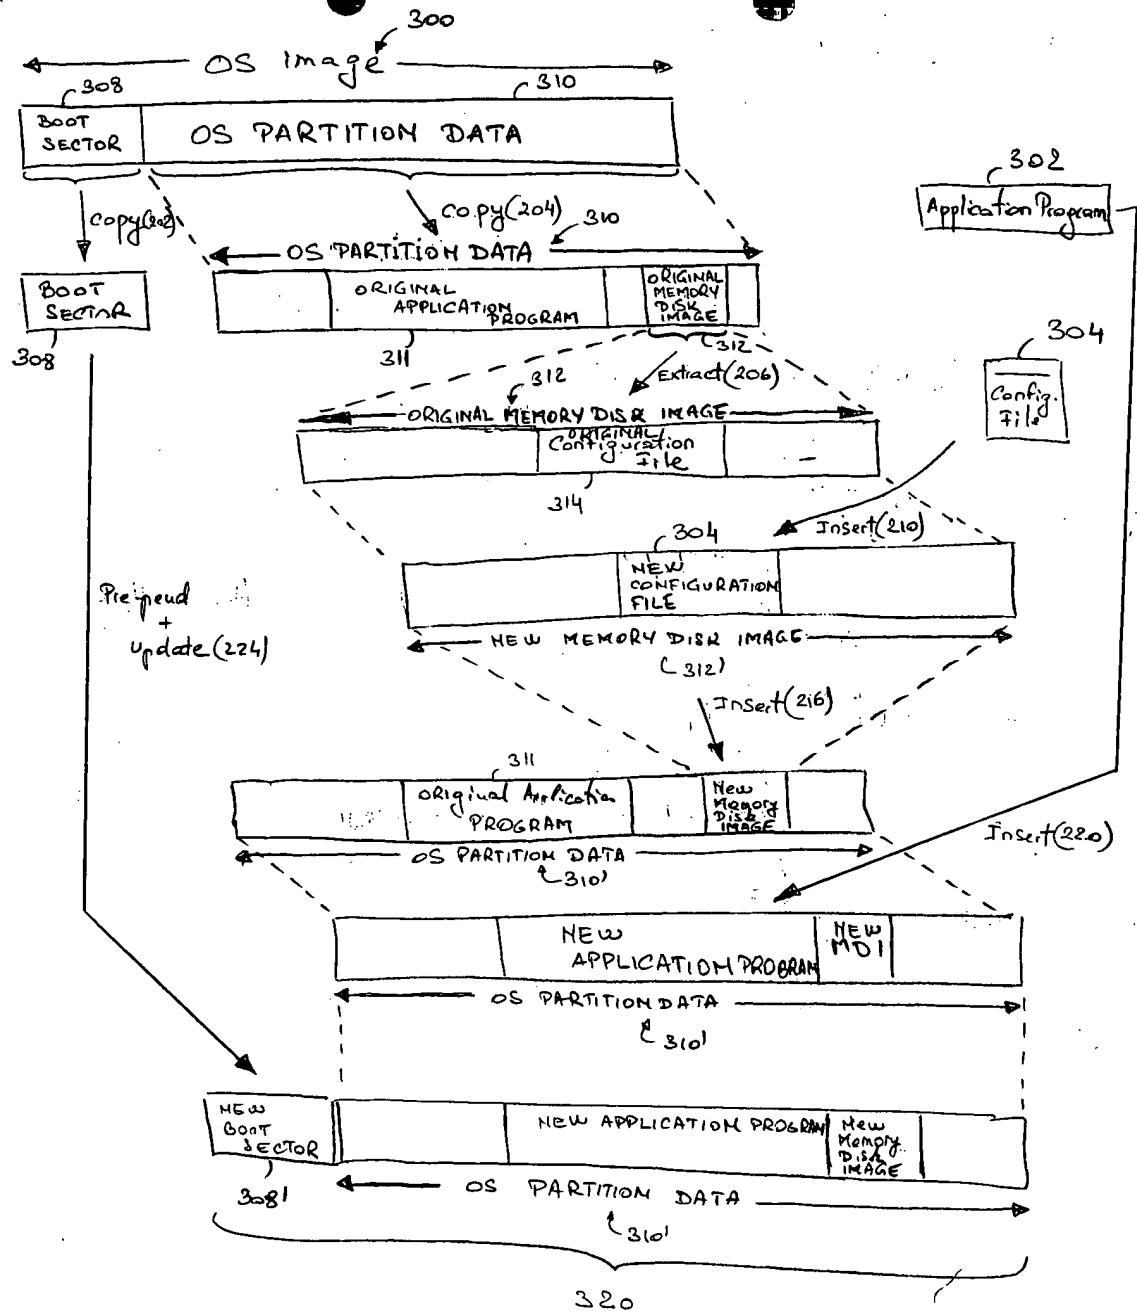 300
OS Image
308
310
BOOT
SECTOR
OS PARTITION DATA
302
Application Program
Copy(202)
Copy(204)
310
OS PARTITION DATA
BOOT
SECTOR
308
ORIGINAL
APPLICATION
PROGRAM
311
ORIGINAL
MEMORY
DISK
IMAGE
312
Extract(206)
304
Config.
File
312
ORIGINAL MEMORY DISK IMAGE
ORIGINAL
Configuration
File
314
Insert(210)
304
NEW
CONFIGURATION
FILE
NEW MEMORY DISK IMAGE
312'
Pre-pend
+
update(224)
Insert(216)
311
Original Application
PROGRAM
New
Memory
Disk
IMAGE
OS PARTITION DATA
310'
Insert(220)
NEW
APPLICATION PROGRAM
NEW
MDI
OS PARTITION DATA
310'
NEW
BOOT
SECTOR
308'
NEW APPLICATION PROGRAM
New
Memory
Disk
IMAGE
OS PARTITION DATA
310'
320